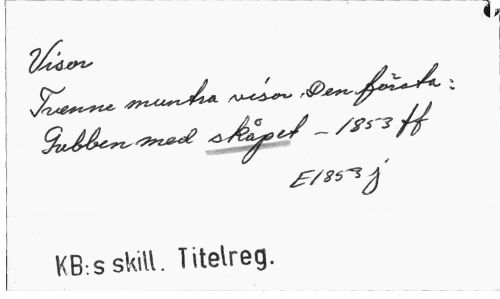 Visor
Tvenne muntra visor. Den första:
Gubben med skåpet - 1853 ff
E1853 j
KB:s skill. Titelreg.